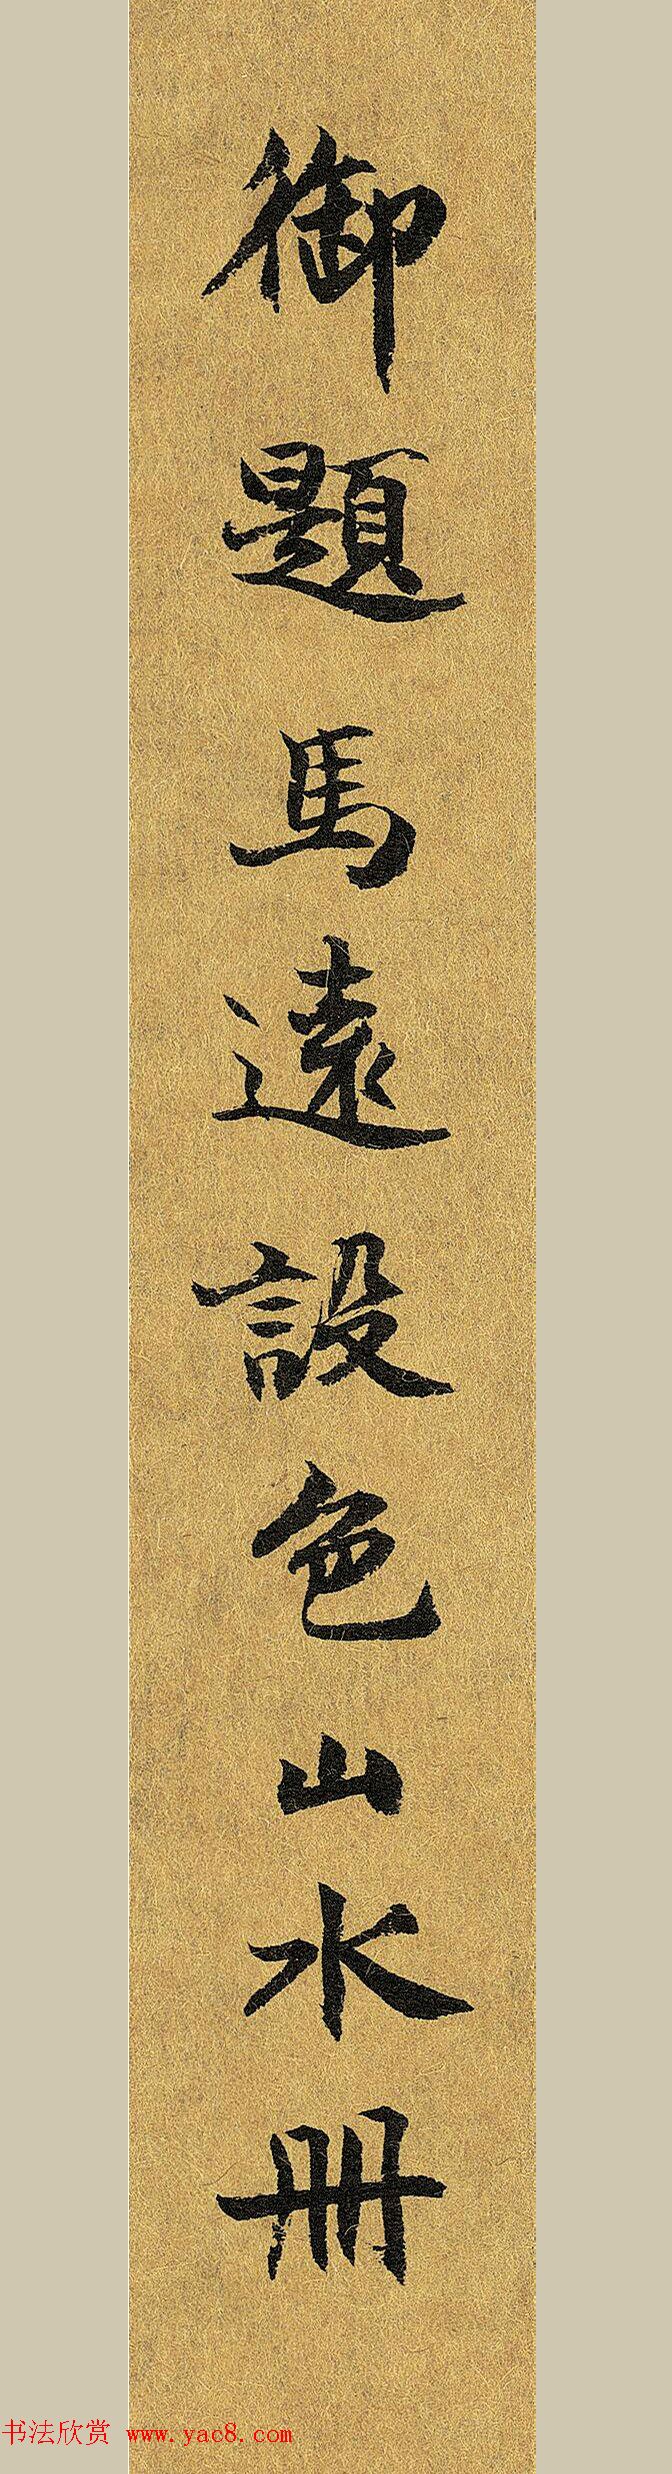 御題馬遠設色山水冊
书法欣赏 www.yac8.com